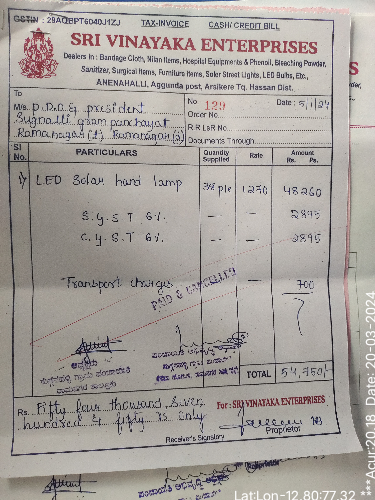 GSTIN : 29AQBPT6040J1ZJ TAX-INVOICE CASH/ CREDIT BILL
SRI VINAYAKA ENTERPRISES
Dealers In : Bandage Cloth, Nilan Items, Hospital Equipments & Phenoil, Bleaching Powder,
Sanitizer, Surgical Items, Furniture Items, Soler Street Lights, LED Bulbs, Etc.,
ANENAHALLI, Aggunda post, Arsikere Tq. Hassan Dist.
To
M/s. P.D.O & president
Sugnalli gram panchayat
Ramanagar (t) Ramanagar (D)
No 129 Date : 5/1/24
Order No.
R.R L.R No.
Documents Through
Sl No. PARTICULARS Quantity Supplied Rate Amount Rs. Ps.
1) LED Solar hand lamp 38 pic 1270 48260
S.G.S.T 6% - - 2895
C.G.S.T 6% - - 2895
Transport charges - 700
PAID & CANCELLED
TOTAL 54,750/-
Rs. Fifty four thousand Seven
hundred & fifty Rs only
For : SRI VINAYAKA ENTERPRISES
Receiver's Signatory
Proprietor
Lat:Lon-12.80:77.32
***Acur:20.18 Date: 20-03-2024